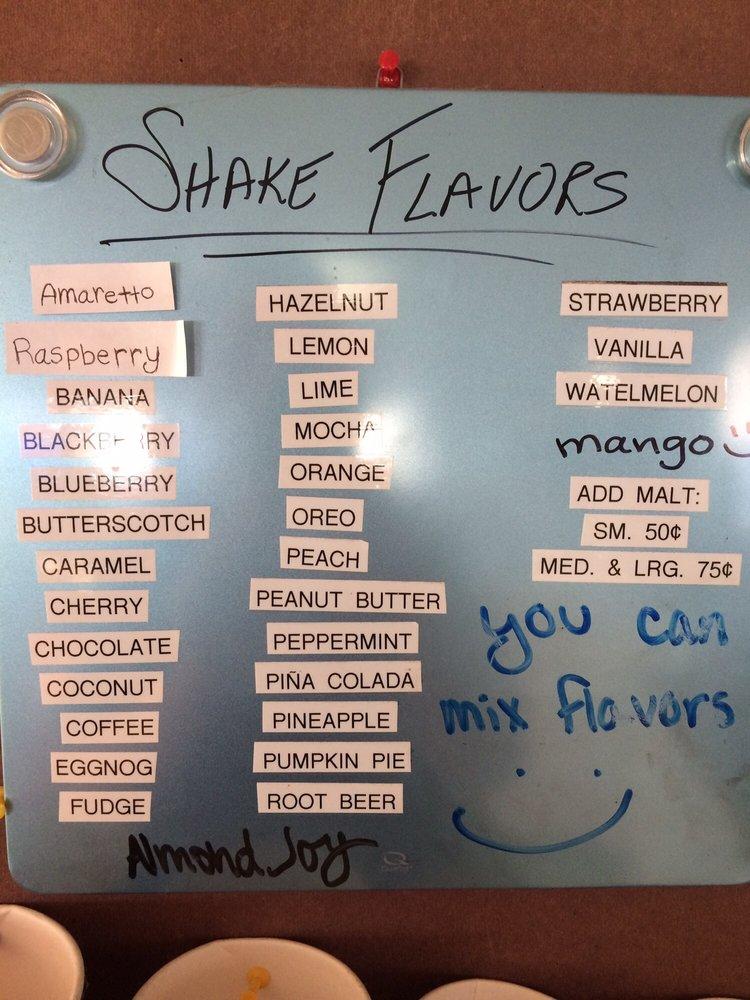 SHAKE FLAVORS
Amaretto
Raspberry
BANANA
BLACKBERRY
BLUEBERRY
BUTTERSCOTCH
CARAMEL
CHERRY
CHOCOLATE
COCONUT
COFFEE
EGGNOG
FUDGE
Almond Joy
HAZELNUT
LEMON
LIME
MOCHA
ORANGE
OREO
PEACH
PEANUT BUTTER
PEPPERMINT
PIÑA COLADA
PINEAPPLE
PUMPKIN PIE
ROOT BEER
STRAWBERRY
VANILLA
WATELMELON
mango
ADD MALT:
SM. 50¢
MED. & LRG. 75¢
you can
mix flavors